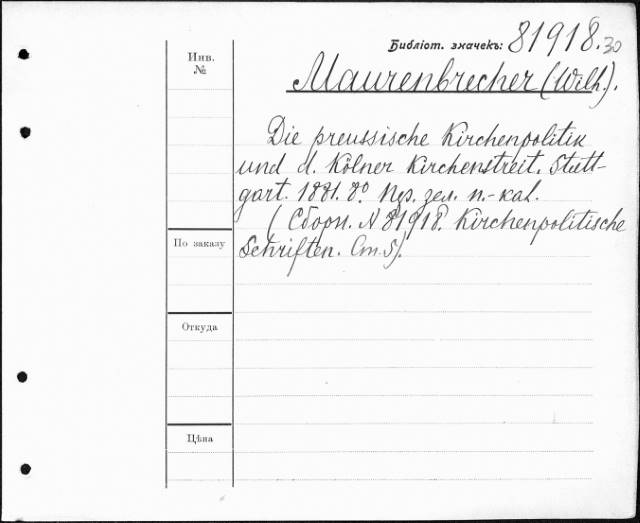 Библіот. значекъ: 81918.30
Инв.
№
Maurenbrecher (Wilh.).
Die preussische Kirchenpolitik
und d. Kölner Kirchenstreit. Stutt-
gart. 1881. 8º. Пер. зел. п.-кал.
(Сборн. N 81918. Kirchenpolitische
Schriften. Ст. 5).
По заказу
Откуда
Цѣна